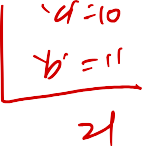 'a'=10
'b' = 11
21